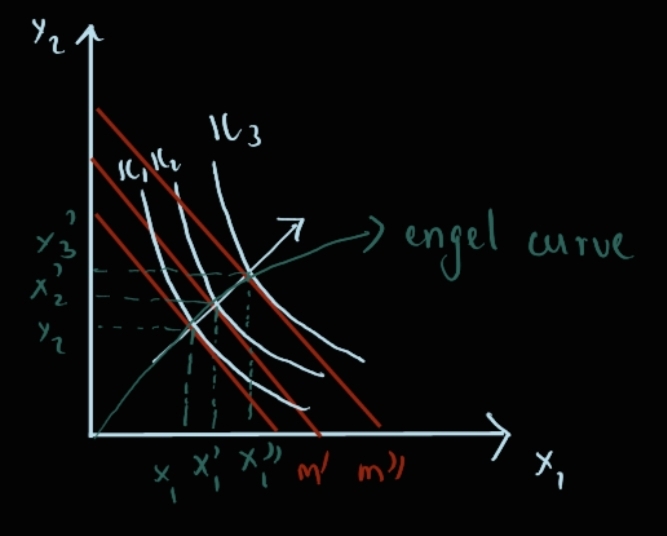 y₂
IC₃
IC₁ IC₂
engel curve
y₃'
x₂'
y₂
x₁ x₁' x₁'' m' m''
x₁